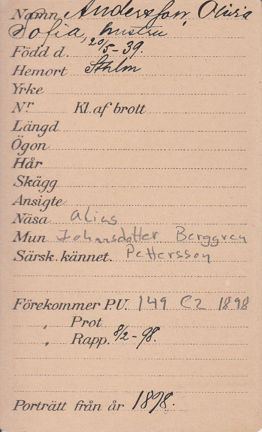 Namn Andersson, Olivia
Sofia, hustru
Född d. 20/5-39.
Hemort Sthlm
Yrke
Nr Kl. af brott
Längd
Ögon
Hår
Skägg
Ansigte
Näsa alias
Mun Johansdotter Berggren
Särsk. kännet. Pettersson
Förekommer P.U. 149 C2 1898
„ Prot
„ Rapp. 8/2-98.
Porträtt från år 1898.